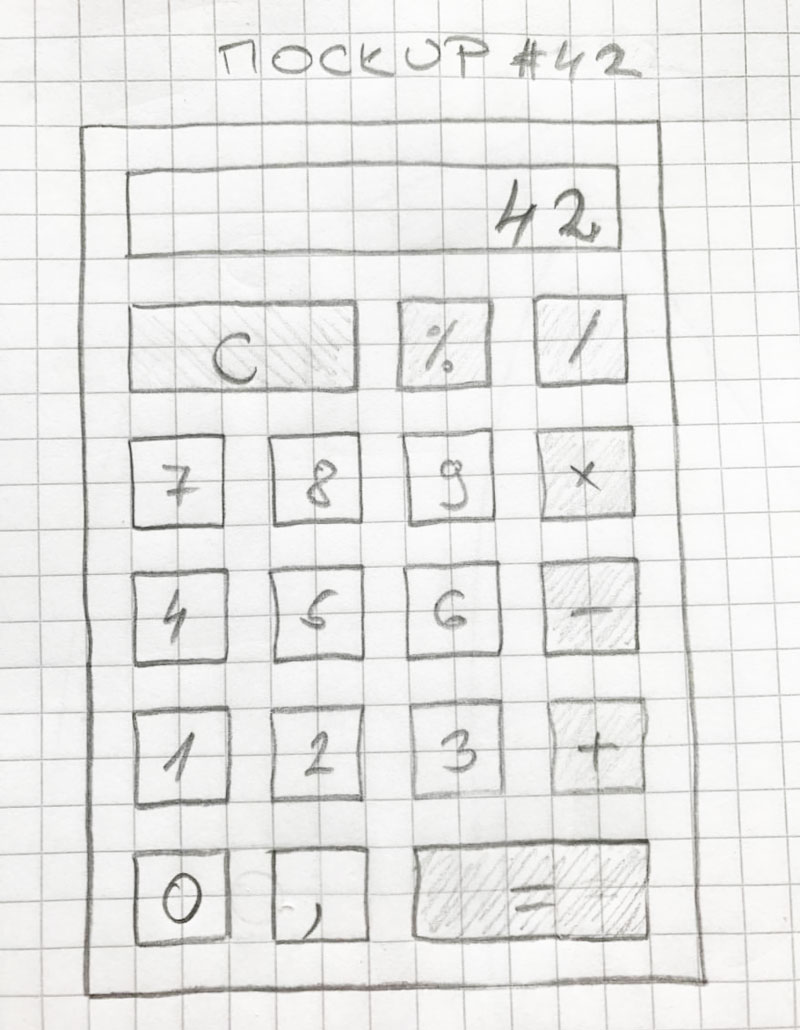 ПOCKUP #42
42
C % /
7 8 9 ×
4 5 6 -
1 2 3 +
0 , =